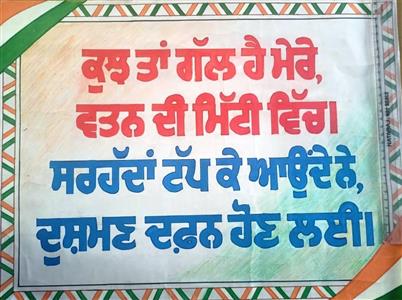 ਕੁਝ ਤਾਂ ਗੱਲ ਹੈ ਮੇਰੇ,
ਵਤਨ ਦੀ ਮਿੱਟੀ ਵਿੱਚ।
ਸਰਹੱਦਾਂ ਟੱਪ ਕੇ ਆਉਂਦੇ ਨੇ,
ਦੁਸ਼ਮਣ ਦਫ਼ਨ ਹੋਣ ਲਈ।